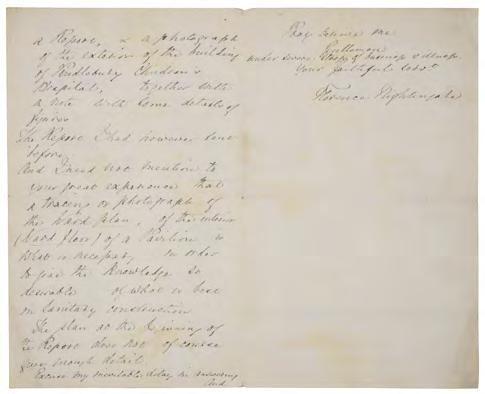 a Report, & a photograph
of the exterior of the building
of Pendlebury Children's
Hospital, together with
a note with some details of
figures
The Report I had however sent
before,
And I need not mention to
your great experience that
a tracing or photograph of
the Ward plan, of the interior
(Ward floor) of a Pavilion is
what is necessary in order
to give the knowledge so
desirable of what is best
in Sanitary construction
The plan at the beginning of
the Report does not of course
give enough detail.
Excuse my inevitable delay in answering
And
Pray believe me
Gentlemen
under severe stress of business & illness
your faithful servt
Florence Nightingale